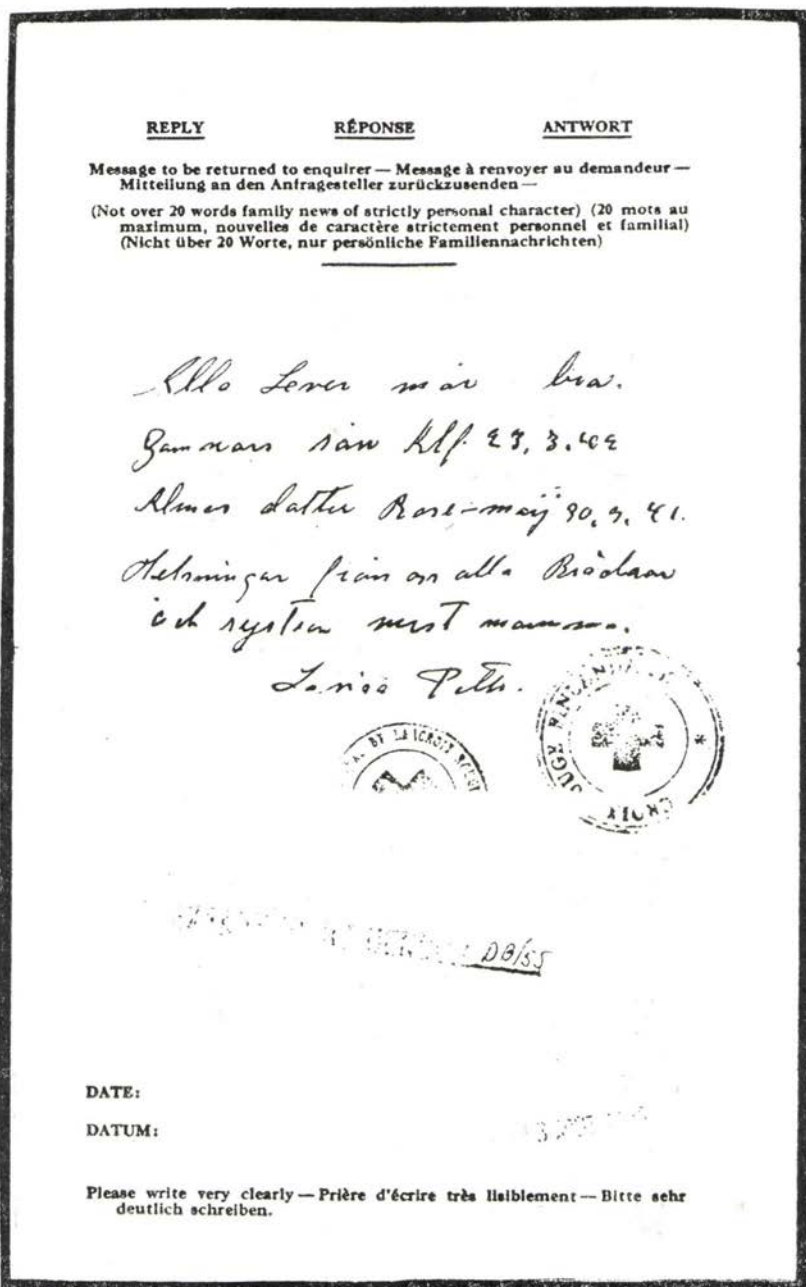 REPLY RÉPONSE ANTWORT
Message to be returned to enquirer — Message à renvoyer au demandeur —
Mitteilung an den Anfragesteller zurückzusenden —
(Not over 20 words family news of strictly personal character) (20 mots au
maximum, nouvelles de caractère strictement personnel et familial)
(Nicht über 20 Worte, nur persönliche Familiennachrichten)
Alla Lever mår bra.
Gunnars sån 23, 3. 42
Almas datter Rose-maj 9. 41.
Helsningar från os alla Brödaar
och systrar merst mamma.
CROIX ROUGE
DB/55
DATE:
DATUM:
Please write very clearly — Prière d'écrire très lisiblement — Bitte sehr
deutlich schreiben.